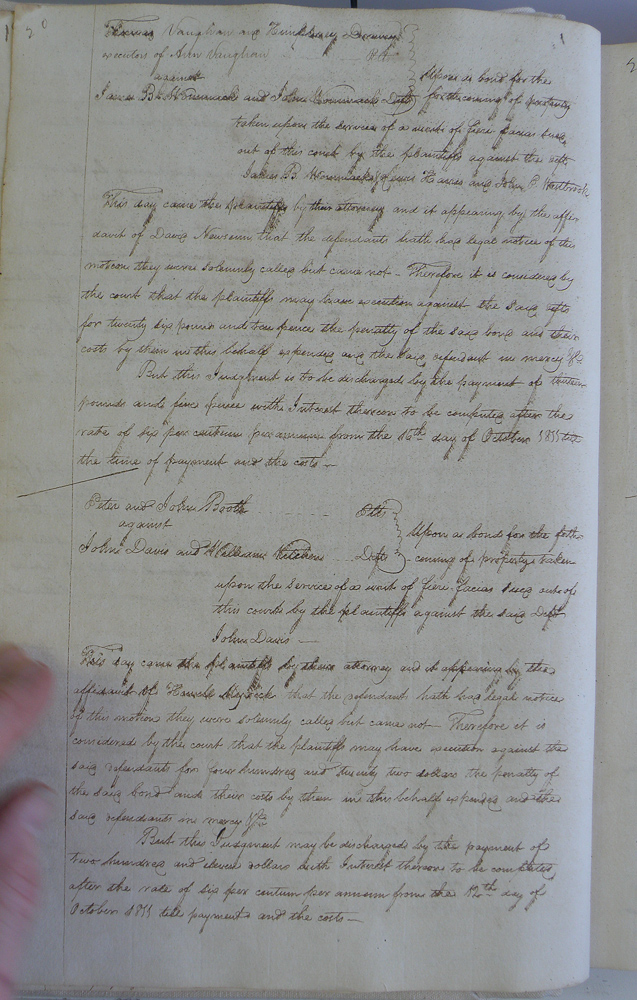 30
Thomas Vaughan and Kinchen
executors of Ann Vaughan
against
James B. Wommack and John Wommack Defts
Upon a bond for the
forthcoming of property
taken upon the service of a writ of fieri facias sued
out of this court by the plaintiffs against the
James B. Wommack, Lewis and John C.
This day came the plaintiffs by their attorney and it appearing by the affi
davit of David Newsum that the defendants hath had legal notice of this
motion they were solemnly called but came not - Therefore it is considered by
the court that the plaintiffs may have execution against the said defts
for twenty six pounds and ten pence the penalty of the said bond and their
costs by them in this behalf expended and the said defendant in mercy &c
But this Judgment is to be discharged by the payment of thirteen
pounds and five pence with Interest thereon to be computed after the
rate of six per centum per annum from the 16th day of October 1811 till
the time of payment and the costs -
Peter and John Booth Plts
against
John Davis and William Kitchens Defts
Upon a bond for the forth
coming of property taken
upon the service of a writ of fieri facias sued out of
this court by the plaintiffs against the said Deft
John Davis -
This day came the plaintiffs by their attorney and it appearing by the
affidavit of that the defendant hath had legal notice
of this motion they were solemnly called but came not Therefore it is
considered by the court that the plaintiffs may have execution against the
said defendants for four hundred and twenty two dollars the penalty of
the said bond and their costs by them in this behalf expended and the
said defendants in mercy &c
But this Judgment may be discharged by the payment of
two hundred and eleven dollars with Interest thereon to be computed
after the rate of six per centum per annum from the 12th day of
October 1811 till payment and the costs -